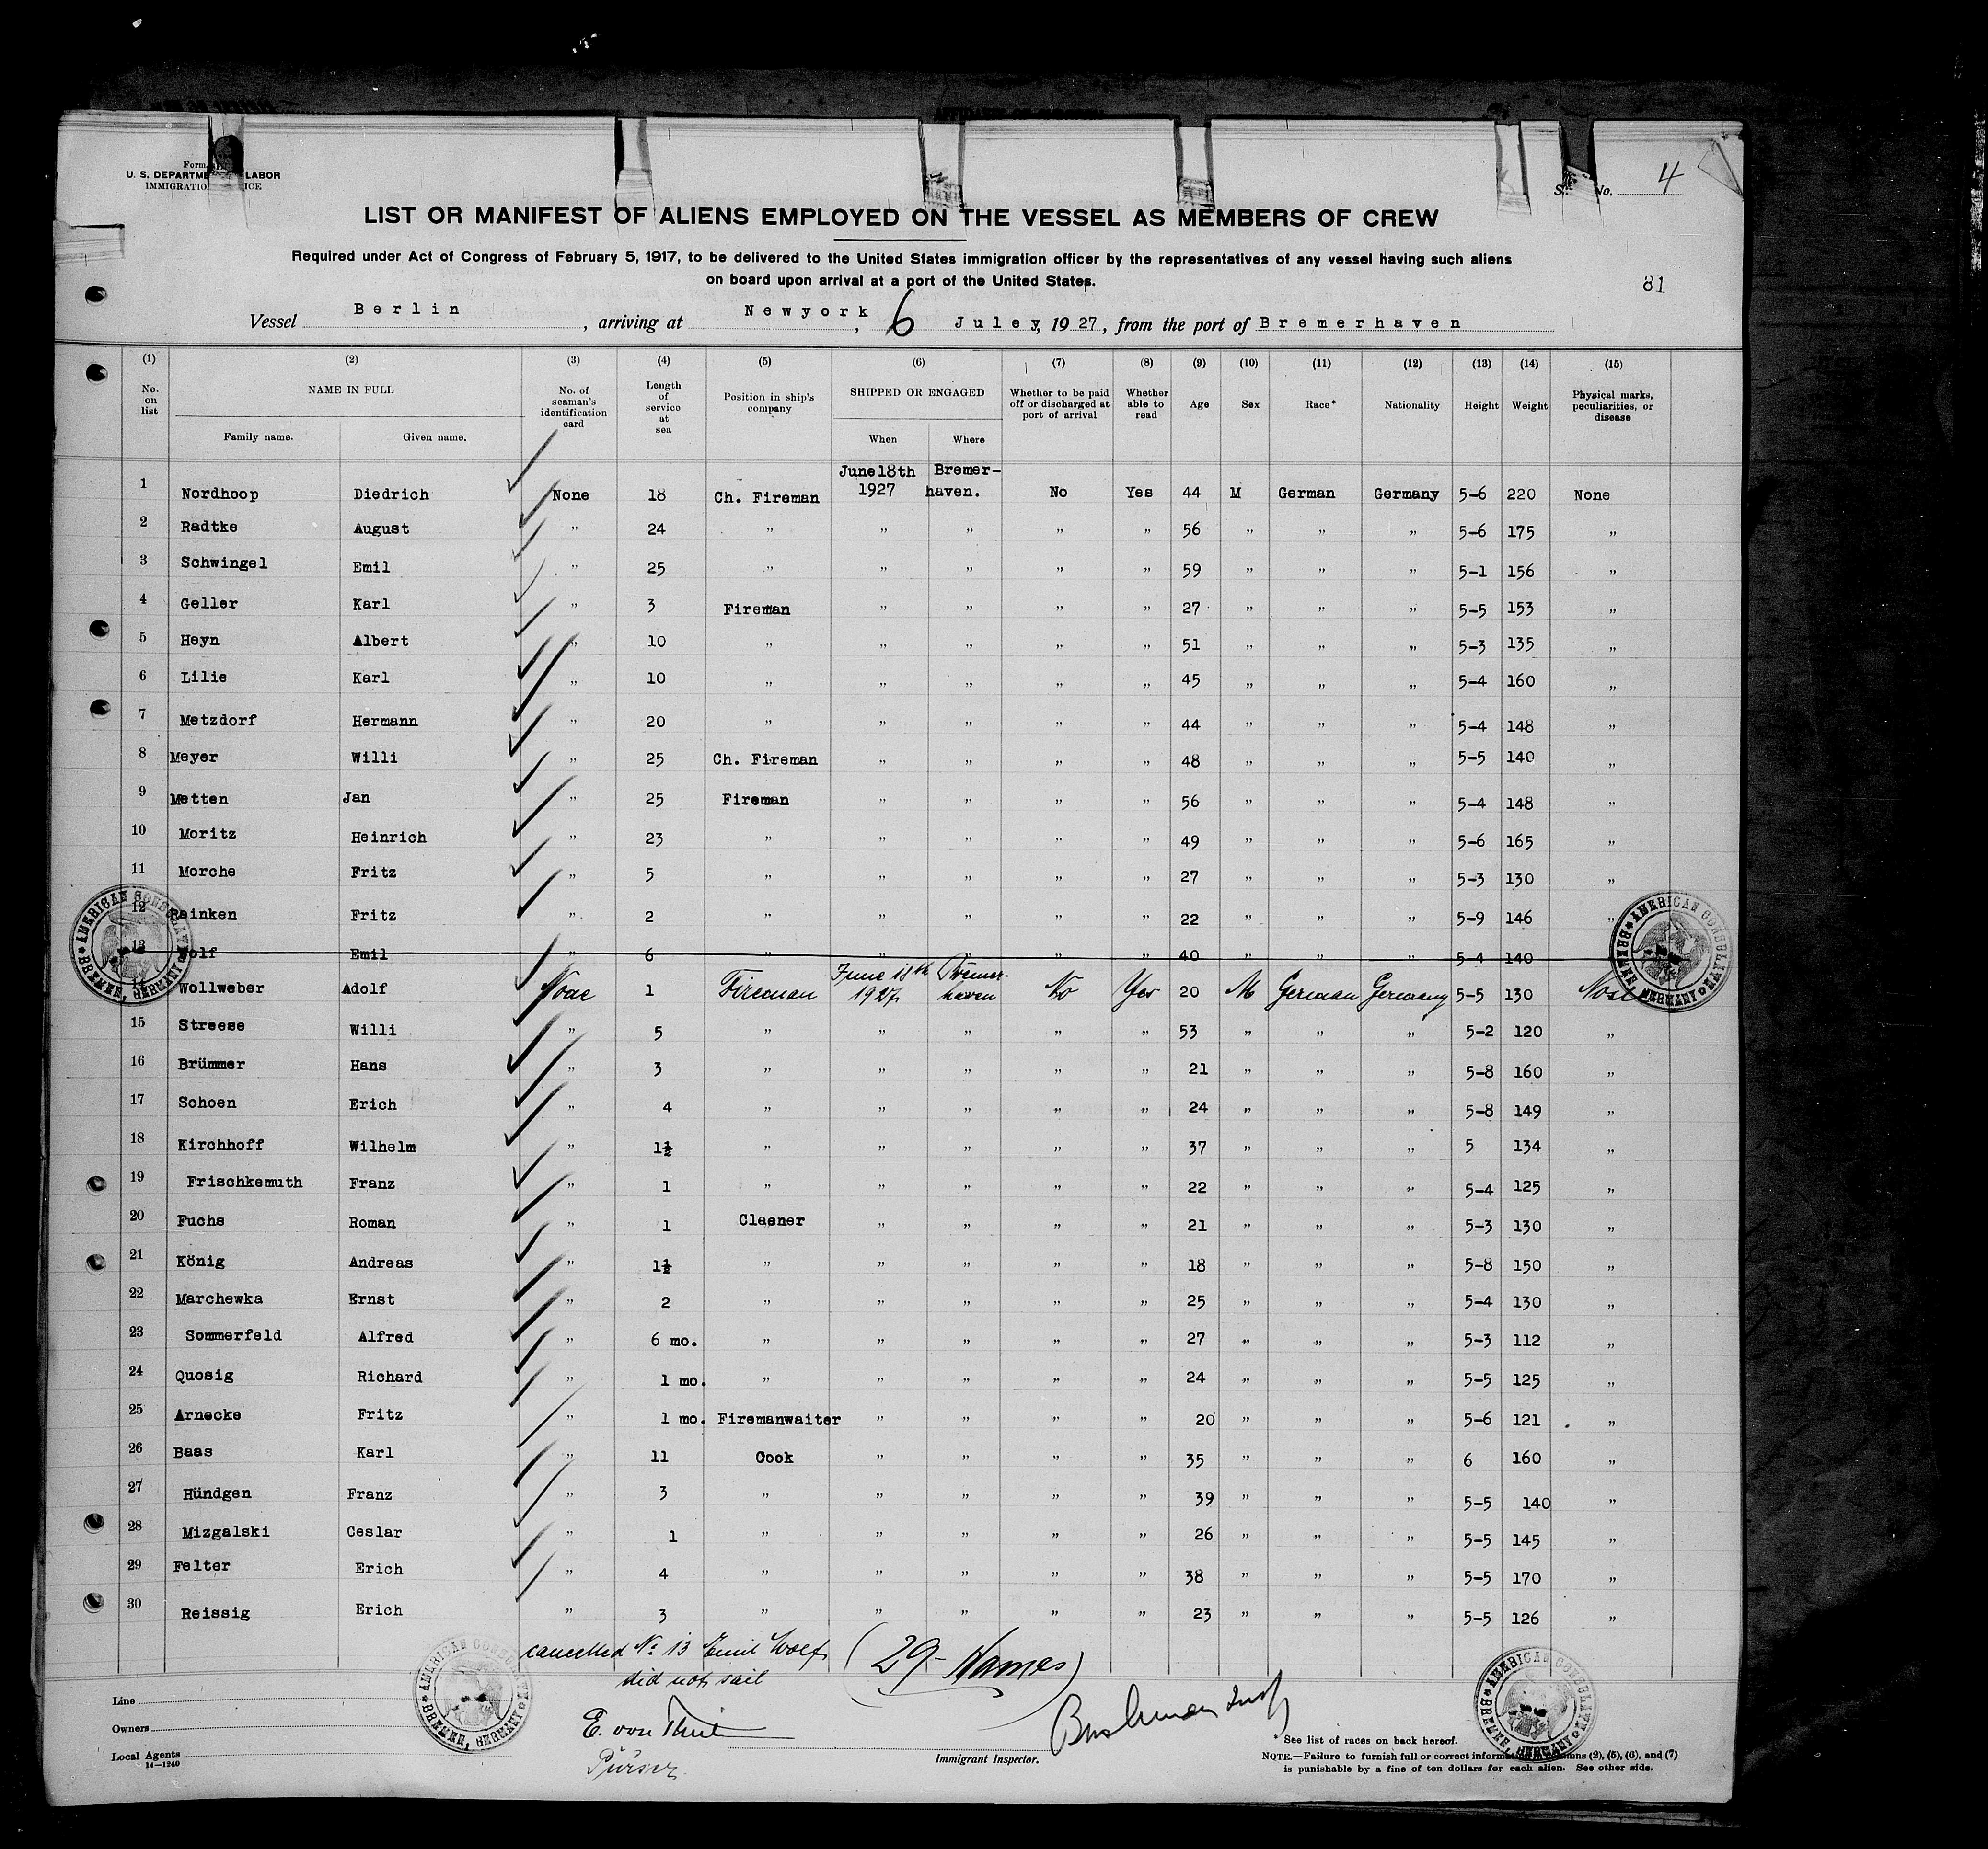 Form
U. S. DEPARTME LABOR
IMMIGRATIO ICE
No. 4
LIST OR MANIFEST OF ALIENS EMPLOYED ON THE VESSEL AS MEMBERS OF CREW
Required under Act of Congress of February 5, 1917, to be delivered to the United States immigration officer by the representatives of any vessel having such aliens
on board upon arrival at a port of the United States.
81
Vessel Berlin, arriving at Newyork, 6 Juley, 1927, from the port of Bremerhaven
(1) (2) (3) (4) (5) (6) (7) (8) (9) (10) (11) (12) (13) (14) (15)
No. on list NAME IN FULL Family name. Given name. No. of seaman's identification card Length of service at sea Position in ship's company SHIPPED OR ENGAGED When Where Whether to be paid off or discharged at port of arrival Whether able to read Age Sex Race* Nationality Height Weight Physical marks, peculiarities, or disease
1 Nordhoop Diedrich None 18 Ch. Fireman June18th 1927 Bremer-haven. No Yes 44 M German Germany 5-6 220 None
2 Radtke August " 24 " " " " " 56 " " " 5-6 175 "
3 Schwingel Emil " 25 " " " " " 59 " " " 5-1 156 "
4 Geller Karl " 3 Fireman " " " " 27 " " " 5-5 153 "
5 Heyn Albert " 10 " " " " " 51 " " " 5-3 135 "
6 Lilie Karl " 10 " " " " " 45 " " " 5-4 160 "
7 Metzdorf Hermann " 20 " " " " " 44 " " " 5-4 148 "
8 Meyer Willi " 25 Ch. Fireman " " " " 48 " " " 5-5 140 "
9 Metten Jan " 25 Fireman " " " " 56 " " " 5-4 148 "
10 Moritz Heinrich " 23 " " " " " 49 " " " 5-6 165 "
11 Morche Fritz " 5 " " " " " 27 " " " 5-3 130 "
12 Reinken Fritz " 2 " " " " " 22 " " " 5-9 146 "
13 Wolf Emil " 6 " " " " " 40 " " " 5-4 140
14 Wollweber Adolf None 1 Fireman June 18th 1927 Bremer-haven No Yes 20 M German Germany 5-5 130 None
15 Streese Willi " 5 " " " " " 53 " " " 5-2 120 "
16 Brümmer Hans " 3 " " " " " 21 " " " 5-8 160 "
17 Schoen Erich " 4 " " " " " 24 " " " 5-8 149 "
18 Kirchhoff Wilhelm " 1½ " " " " " 37 " " " 5 134 "
19 Frischkemuth Franz " 1 " " " " " 22 " " " 5-4 125 "
20 Fuchs Roman " 1 Cleener " " " " 21 " " " 5-3 130 "
21 König Andreas " 1½ " " " " " 18 " " " 5-8 150 "
22 Marchewka Ernst " 2 " " " " " 25 " " " 5-4 130 "
23 Sommerfeld Alfred " 6 mo. " " " " " 27 " " " 5-3 112 "
24 Quosig Richard " 1 mo. " " " " " 24 " " " 5-5 125 "
25 Arnecke Fritz " 1 mo. Firemanwaiter " " " " 20 " " " 5-6 121 "
26 Baas Karl " 11 Cook " " " " 35 " " " 6 160 "
27 Hündgen Franz " 3 " " " " " 39 " " " 5-5 140 "
28 Mizgalski Ceslar " 1 " " " " " 26 " " " 5-5 145 "
29 Felter Erich " 4 " " " " " 38 " " " 5-5 170 "
30 Reissig Erich " 3 " " " " " 23 " " " 5-5 126 "
cancelled No 13 Emil Wolf
did not sail
(29- Names)
AMERICAN CONSULATE BREMEN, GERMANY
AMERICAN CONSULATE BREMEN, GERMANY
AMERICAN CONSULATE BREMEN, GERMANY
AMERICAN CONSULATE BREMEN, GERMANY
Line
Owners
Local Agents
14—1240
E. von
Purser
Immigrant Inspector.
* See list of races on back hereof.
NOTE.—Failure to furnish full or correct informa mns (2), (5), (6), and (7)
is punishable by a fine of ten dollars for each alien. See other side.